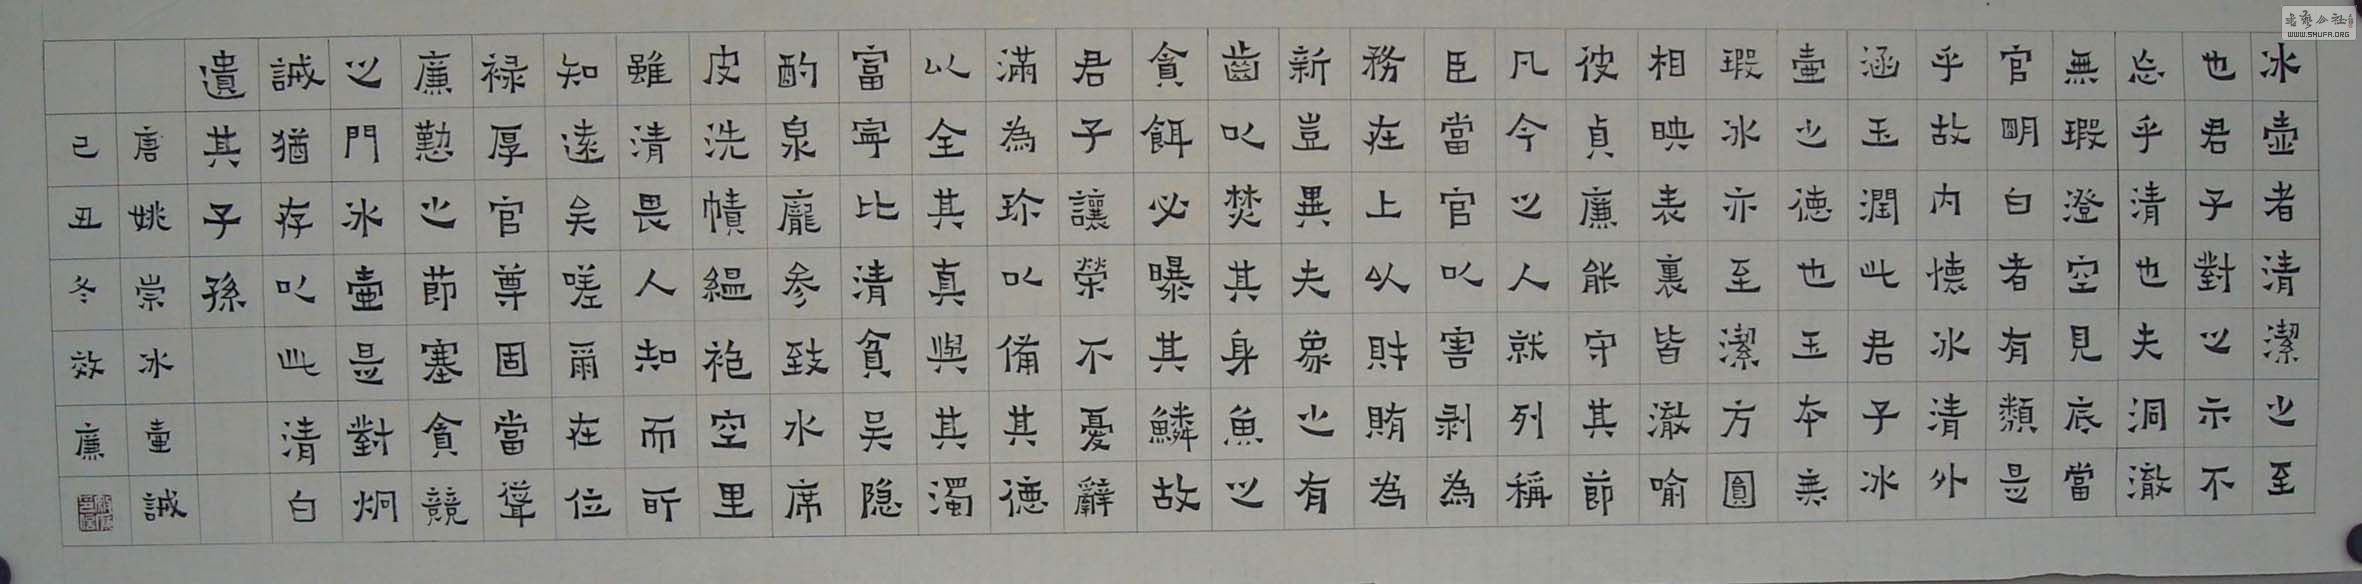 冰壺者清潔之至
也君子對之示不
忘乎清也夫洞澈
無瑕澄空見底當
官明白者有類是
乎故内懷冰清外
涵玉潤此君子冰
壷之德也玉本無
瑕冰亦至潔方圓
相映表裏皆澈喻
彼貞廉能守其節
凡今之人就列稱
臣當官以害剥為
務在上以財賄為
新豈異夫象之有
齒以焚其身魚之
貪餌必曝其鱗故
君子讓榮不憂辭
滿為珍以備其德
以全其真與其濁
富寧比清貧吴隐
酌泉龐參致水席
皮洗幘緼袍空里
雖清畏人知而所
知遠矣嗟爾在位
禄厚官尊固當聳
廉勤之節塞貪競
之門冰壷是對炯
誡猶存以此清白
遺其子孫
唐姚崇冰壷誡
己丑冬效廉
書藝公社
WWW.SHUFA.ORG